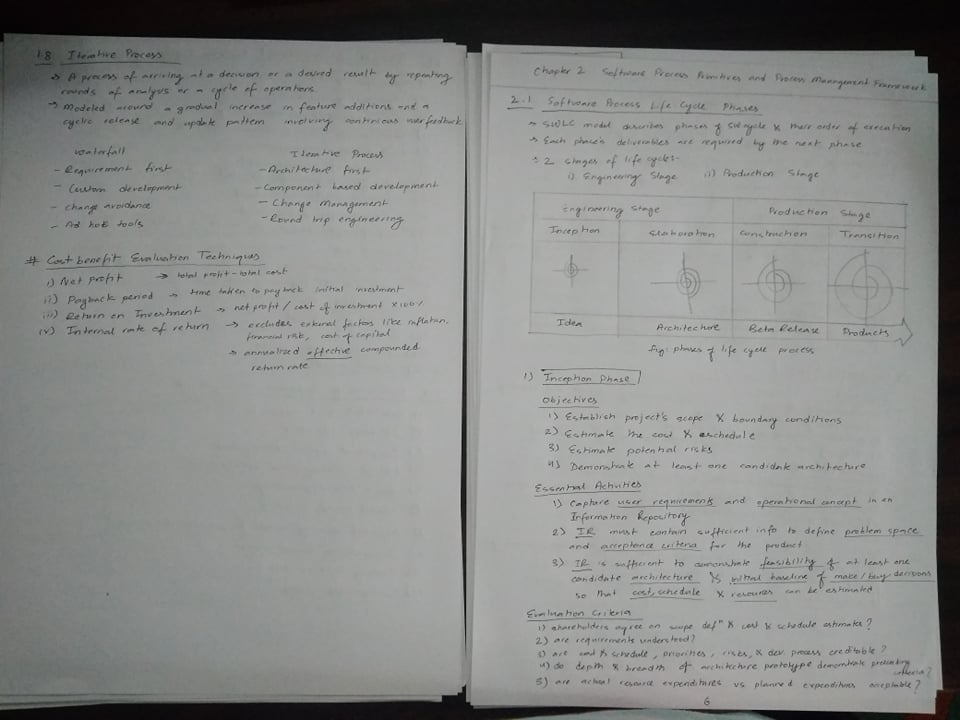 1.8 Iterative Process
→ A process of arriving at a decision or a desired result by repeating
rounds of analysis or a cycle of operations.
→ Modeled around a gradual increase in feature additions and a
cyclic release and update pattern involving continious user feedback
Waterfall
- Requirement first
- Custom development
- Change avoidance
- Ad hoc tools
Iterative Process
- Architecture first
- Component based development
- Change Management
- Round trip engineering
# Cost benefit Evaluation Techniques
i) Net profit → total profit - total cost
ii) Payback period → time taken to payback initial investment
iii) Return on Investment → net profit / cost of investment x 100%
iv) Internal rate of return → excludes external factors like inflation,
financial risk, cost of capital
→ annualized effective compounded
return rate
Chapter 2 Software Process Primitives and Process Management Framework
2.1 Software Process Life Cycle Phases
→ SWLC model describes phases of SW cycle & their order of execution
→ Each phase's deliverables are required by the next phase
→ 2 stages of life cycles-
i) Engineering Stage ii) Production Stage
Engineering Stage Production Stage
Inception Elaboration Construction Transition
Idea Architecture Beta Release Products
fig: phases of life cycle process
1) Inception Phase
Objectives
1) Establish project's scope & boundary conditions
2) Estimate the cost & schedule
3) Estimate potential risks
4) Demonstrate at least one candidate architecture
Essential Activities
1) Capture user requirements and operational concept in an
Information Repository
2) IR must contain sufficient info to define problem space
and acceptance criteria for the product
3) IR is sufficient to demonstrate feasibility of at least one
candidate architecture & initial baseline of make/buy decisions
so that cost, schedule & resources can be estimated
Evaluation Criteria
1) shareholders agree on scope defⁿ & cost & schedule estimate?
2) are requirements understood?
3) are cost & schedule, priorities, risks, & dev. process creditable?
4) do depth & breadth of architecture prototype demonstrate preceding
criteria?
5) are actual resource expenditures vs planned expenditures acceptable?
6